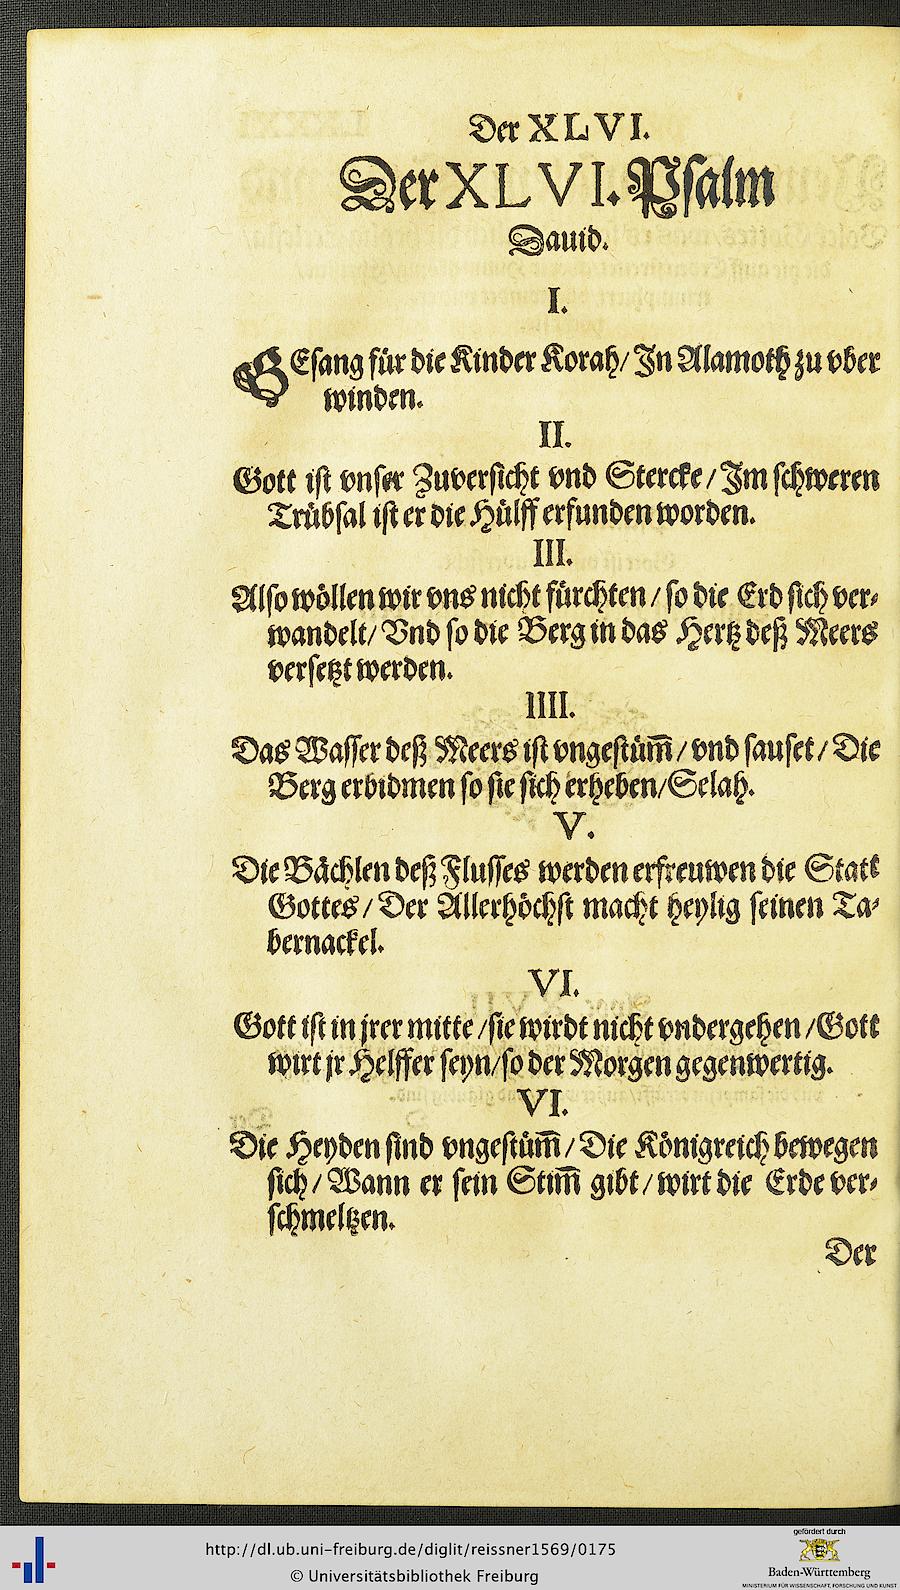 Der XLVI.
Der XLVI. Psalm
Dauid.
I.
GEsang für die Kinder Korah/ Jn Alamoth zu vber
winden.
II.
Gott ist vnser Zuversicht vnd Stercke / Jm schweren
Trübsal ist er die Hülff erfunden worden.
III.
Also wöllen wir vns nicht fürchten / so die Erd sich ver⸗
wandelt/ Vnd so die Berg in das Hertz deß Meers
versetzt werden.
IIII.
Das Wasser deß Meers ist vngestüm̄ / vnd sauset / Die
Berg erbidmen so sie sich erheben/Selah.
V.
Die Bächlen deß Flusses werden erfreuwen die Statt
Gottes / Der Allerhöchst macht heylig seinen Ta⸗
bernackel.
VI.
Gott ist in jrer mitte /sie wirdt nicht vndergehen /Gott
wirt jr Helffer seyn/so der Morgen gegenwertig.
VI.
Die Heyden sind vngestüm̄ / Die Königreich bewegen
sich / Wann er sein Stim̄ gibt / wirt die Erde ver⸗
schmeltzen.
Der
http://dl.ub.uni-freiburg.de/diglit/reissner1569/0175
© Universitätsbibliothek Freiburg
gefördert durch
Baden-Württemberg
MINISTERIUM FÜR WISSENSCHAFT, FORSCHUNG UND KUNST